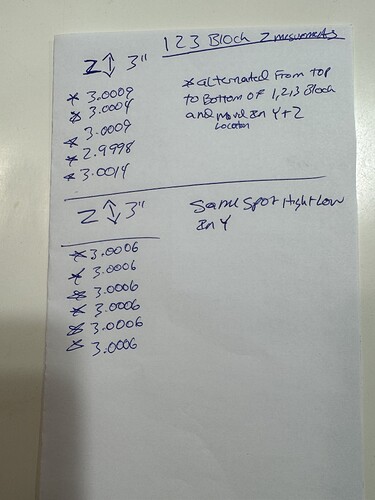 1 2 3 Block Z mesurments
Z ↕ 3"
* 3.0009
* 3.0004
* 3.0009
* 2.9998
* 3.0014
* alternated From top
to Bottom of 1,2,3 Block
and moved in Y+Z
Location
Z ↕ 3"
Same Spot High+Low
In Y
* 3.0006
* 3.0006
* 3.0006
* 3.0006
* 3.0006
* 3.0006